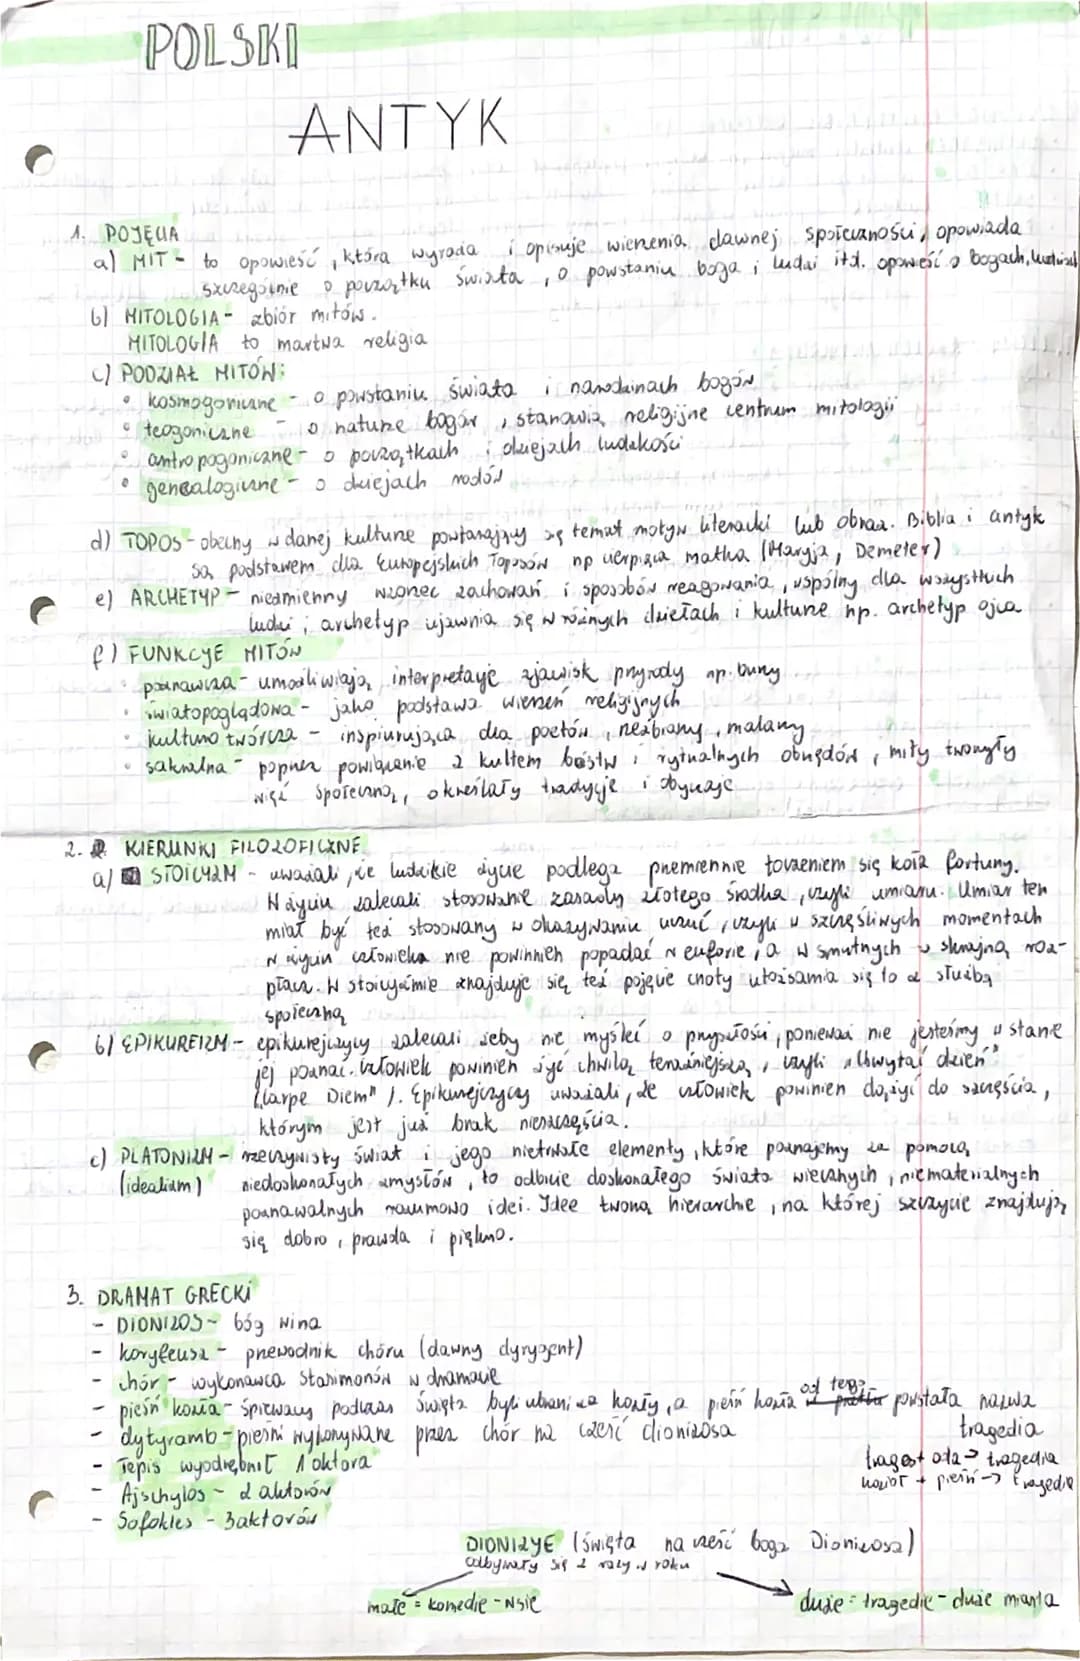 POLSKI
ANTYK
1. POJĘCIA
a) MIT - to opowieść, która wyraża i opisuje wierzenia dawnej społeczności, opowiada
szczególnie o początku świata, o powstaniu boga i ludzi itd. opowieść o bogach,
b) MITOLOGIA - zbiór mitów.
MITOLOGIA to martwa religia
c) PODZIAŁ MITÓW:
• kosmogoniczne - o powstaniu świata i narodzinach bogów
• teogoniczne - o naturze bogów, stanowią religijne centrum mitologii
• antropogoniczne - o początkach i dziejach ludzkości
• genealogiczne - o dziejach rodów
d) TOPOS - obecny w danej kulturze powtarzający się temat motyw literacki lub obraz. Biblia i antyk
są podstawem dla Europejskich Toposów np cierpiąca matka (Maryja, Demeter)
e) ARCHETYP - niezmienny wzorzec zachowań i sposobów reagowania, wspólny dla wszystkich
ludzi; archetyp ujawnia się w różnych dziełach i kulturze np. archetyp ojca
f) FUNKCJE MITÓW
• poznawcza - umożliwiają interpretację zjawisk przyrody np. burzy
• światopoglądowa - jako podstawa wierzeń religijnych
• kulturo twórcza - inspirująca dla poetów, rzeźbiarzy, malarzy
• sakralna - poprzez powiązanie z kultem bóstw i rytualnych obrzędów, mity tworzyły
więź społeczną, określały tradycje i obyczaje
2. KIERUNKI FILOZOFICZNE
a) STOICYZM - uważali, że ludzkie życie podlega przemiennie toczeniem się koła fortuny.
W życiu zalecali stosowanie zasady złotego środka, czyli umiaru. Umiar ten
miał być też stosowany w okazywaniu uczuć, czyli w szczęśliwych momentach
w życiu człowieka nie powinien popadać w euforie, a w smutnych w skrajną roz-
pacz. W stoicyzmie znajduje się też pojęcie cnoty utożsamia się to z służbą
społeczną
b) EPIKUREIZM - epikurejczycy zalecali żeby nie myśleć o przyszłości, ponieważ nie jesteśmy w stanie
jej poznać. Człowiek powinien żyć chwilą teraźniejszą, czyli "Chwytać dzień"
("Carpe Diem"). Epikurejczycy uważali, że człowiek powinien dążyć do szczęścia,
którym jest już brak nieszczęścia.
c) PLATONIZM - rzeczywisty świat i jego nietrwałe elementy, które poznajemy za pomocą
(idealizm) niedoskonałych zmysłów, to odbicie doskonałego świata wiecznych, niematerialnych
poznawalnych rozumowo idei. Idee tworzą hierarchie, na której szczycie znajdują
się dobro, prawda i piękno.
3. DRAMAT GRECKI
- DIONIZOS - bóg wina
- koryfeusz - przewodnik chóru (dawny dyrygent)
- chór - wykonawca stasimonów w dramacie
- pieśń kozła - śpiewacy podczas święta byli ubrani za kozły, a pieśń kozła od tego powstała nazwa
tragedia
- dytyramb - pieśni wykonywane przez chór na cześć dionizosa
- Tepis wyodrębnił 1 aktora
tragos + oda → tragedia
- Ajschylos - 2 aktorów
kozioł + pieśń → tragedia
- Sofokles - 3 aktorów
DIONIZJE (święta na cześć boga Dionizosa)
odbywały się 2 razy w roku
małe = komedie - wsie
duże = tragedie - duże miasta